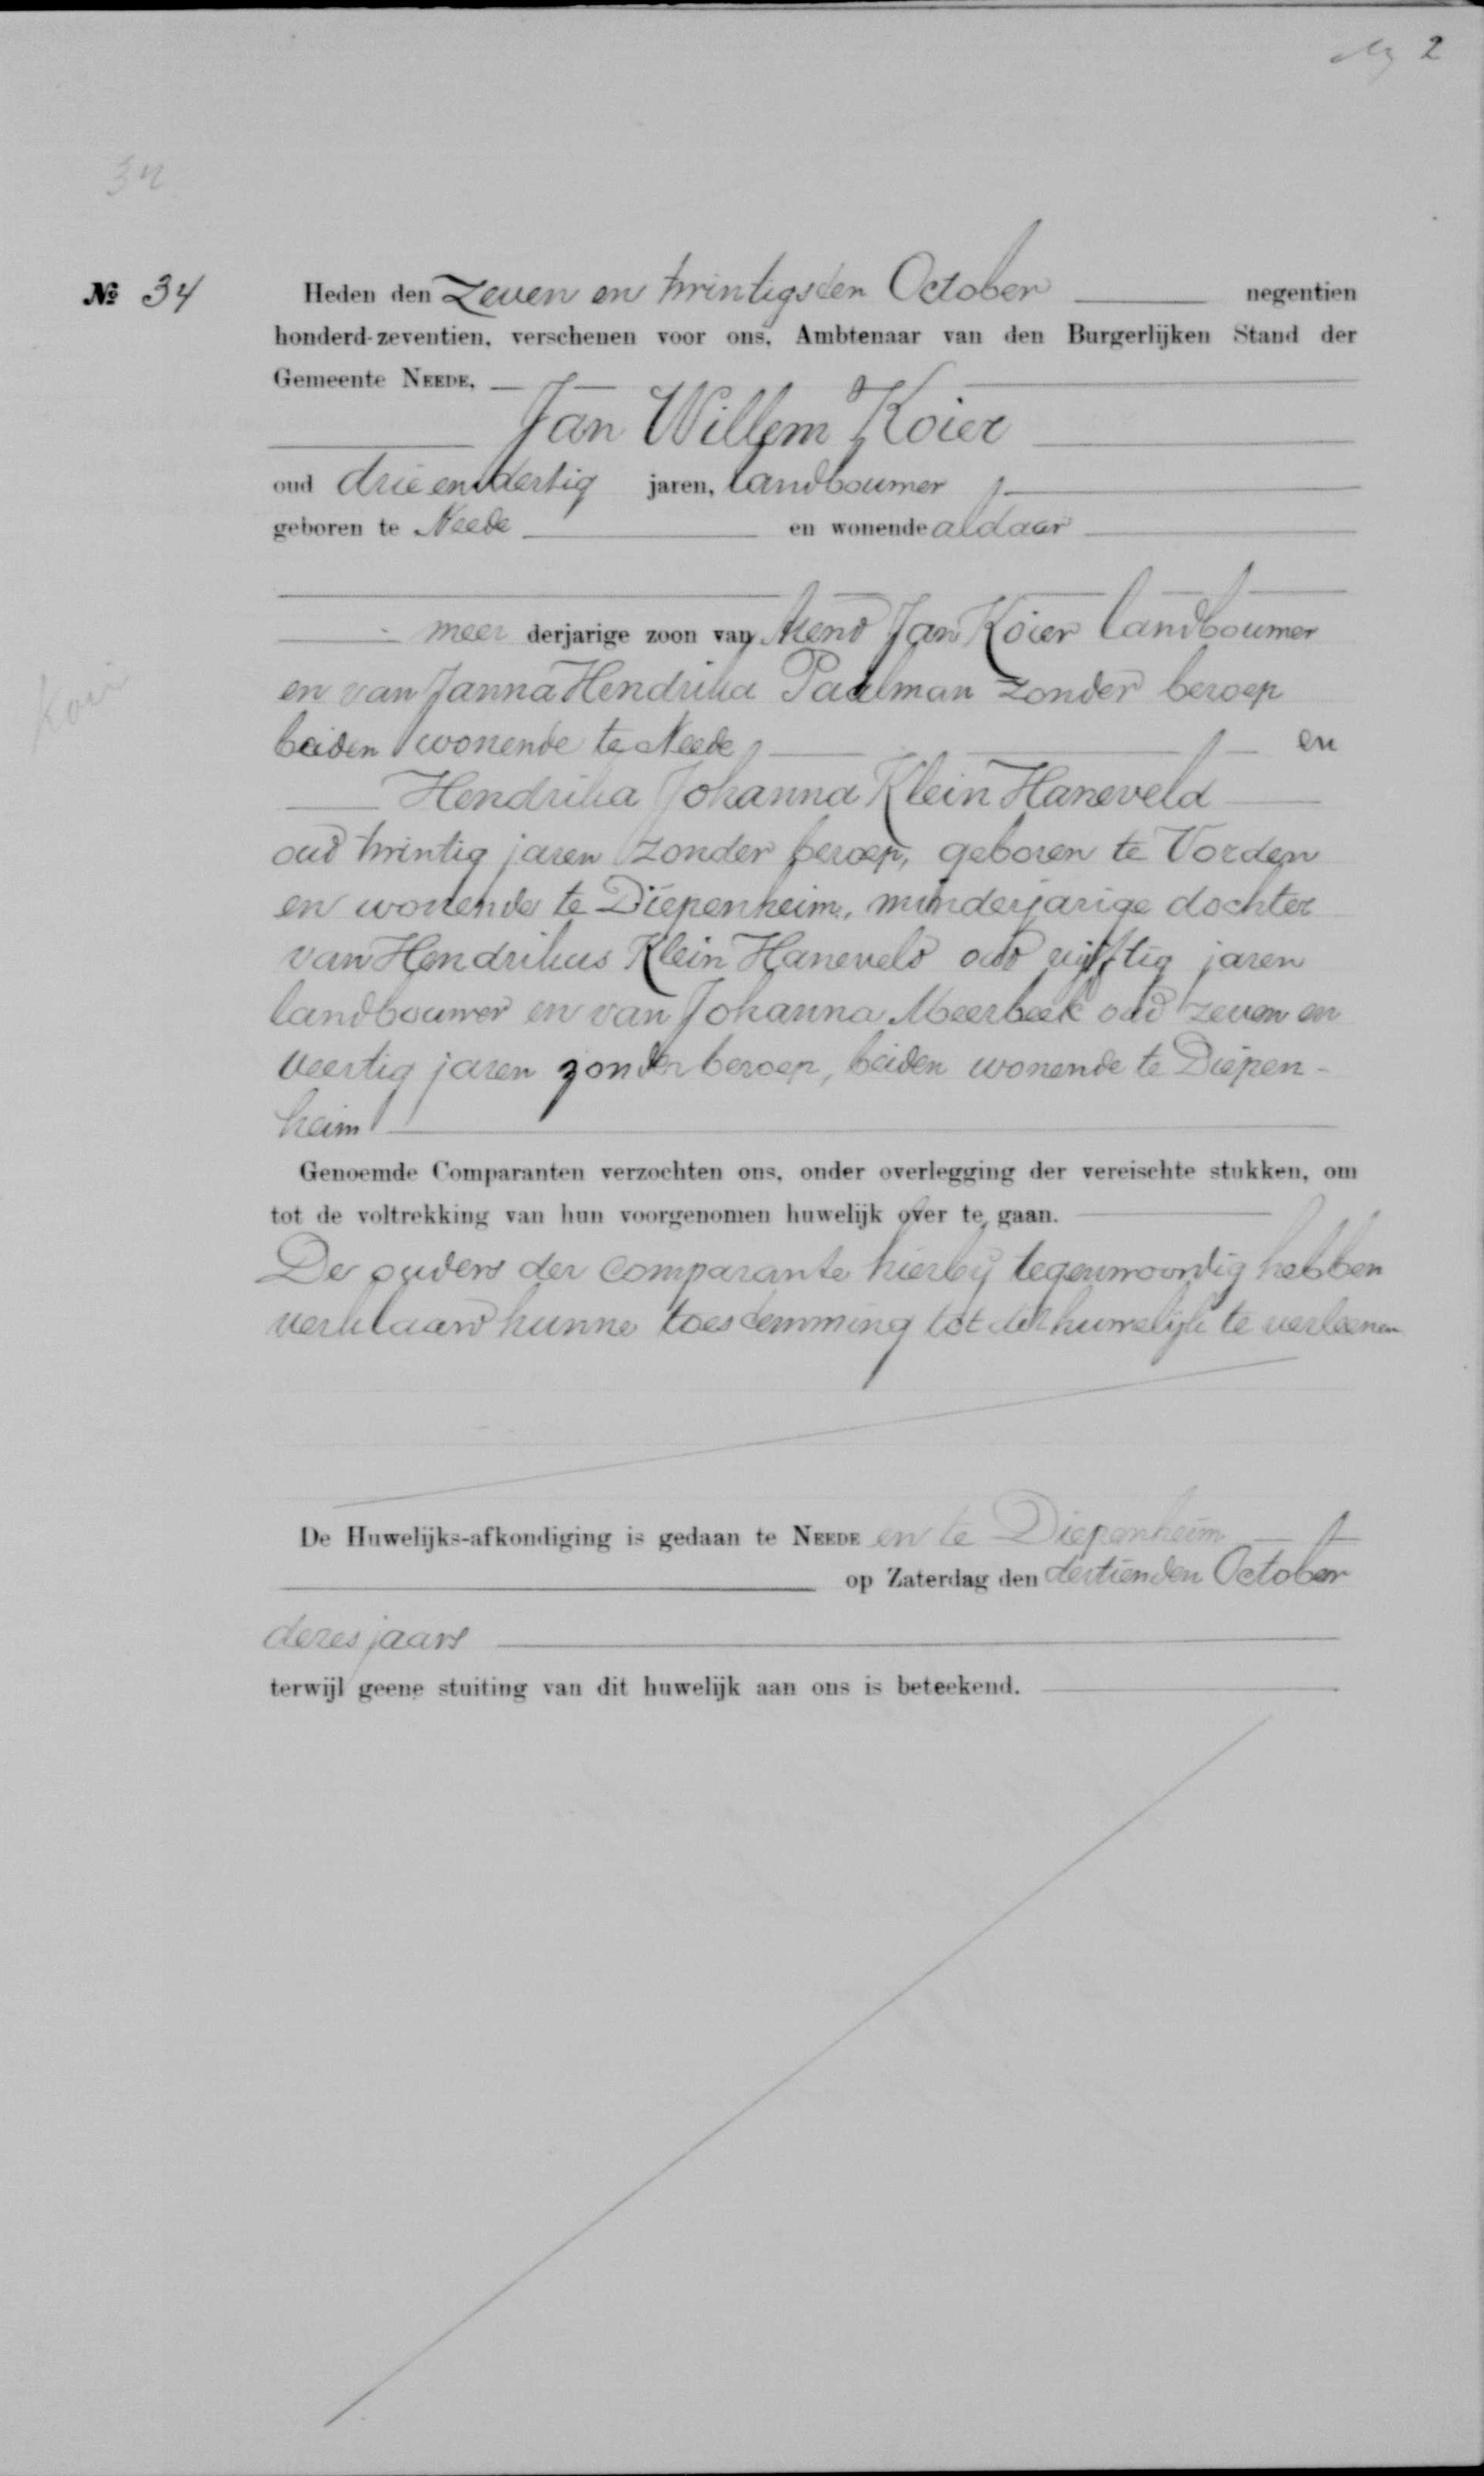 2
34
№ 34 Heden den Zeven en twintigsten October negentien
honderd-zeventien, verschenen voor ons, Ambtenaar van den Burgerlijken Stand der
Gemeente NEEDE,
Jan Willem Koier
oud drie en dertig jaren, landbouwer
geboren te Neede en wonende aldaar
meer derjarige zoon van Arend Jan Koier landbouwer
en van Janna Hendrika Paalman zonder beroep
beiden wonende te Neede en
Hendrika Johanna Klein Haneveld
oud twintig jaren zonder beroep, geboren te Vorden
en wonende te Diepenheim, minderjarige dochter
van Hendrikus Klein Haneveld oud vijftig jaren
landbouwer en van Johanna Meerbeek oud zeven en
veertig jaren zonder beroep, beiden wonende te Diepen-
heim
Genoemde Comparanten verzochten ons, onder overlegging der vereischte stukken, om
tot de voltrekking van hun voorgenomen huwelijk over te gaan.
De ouders der comparante hierbij tegenwoordig hebben
verklaard hunne toestemming tot dit huwelijk te verleenen
De Huwelijks-afkondiging is gedaan te NEEDE en te Diepenheim
op Zaterdag den dertienden October
dezes jaars
terwijl geene stuiting van dit huwelijk aan ons is beteekend.